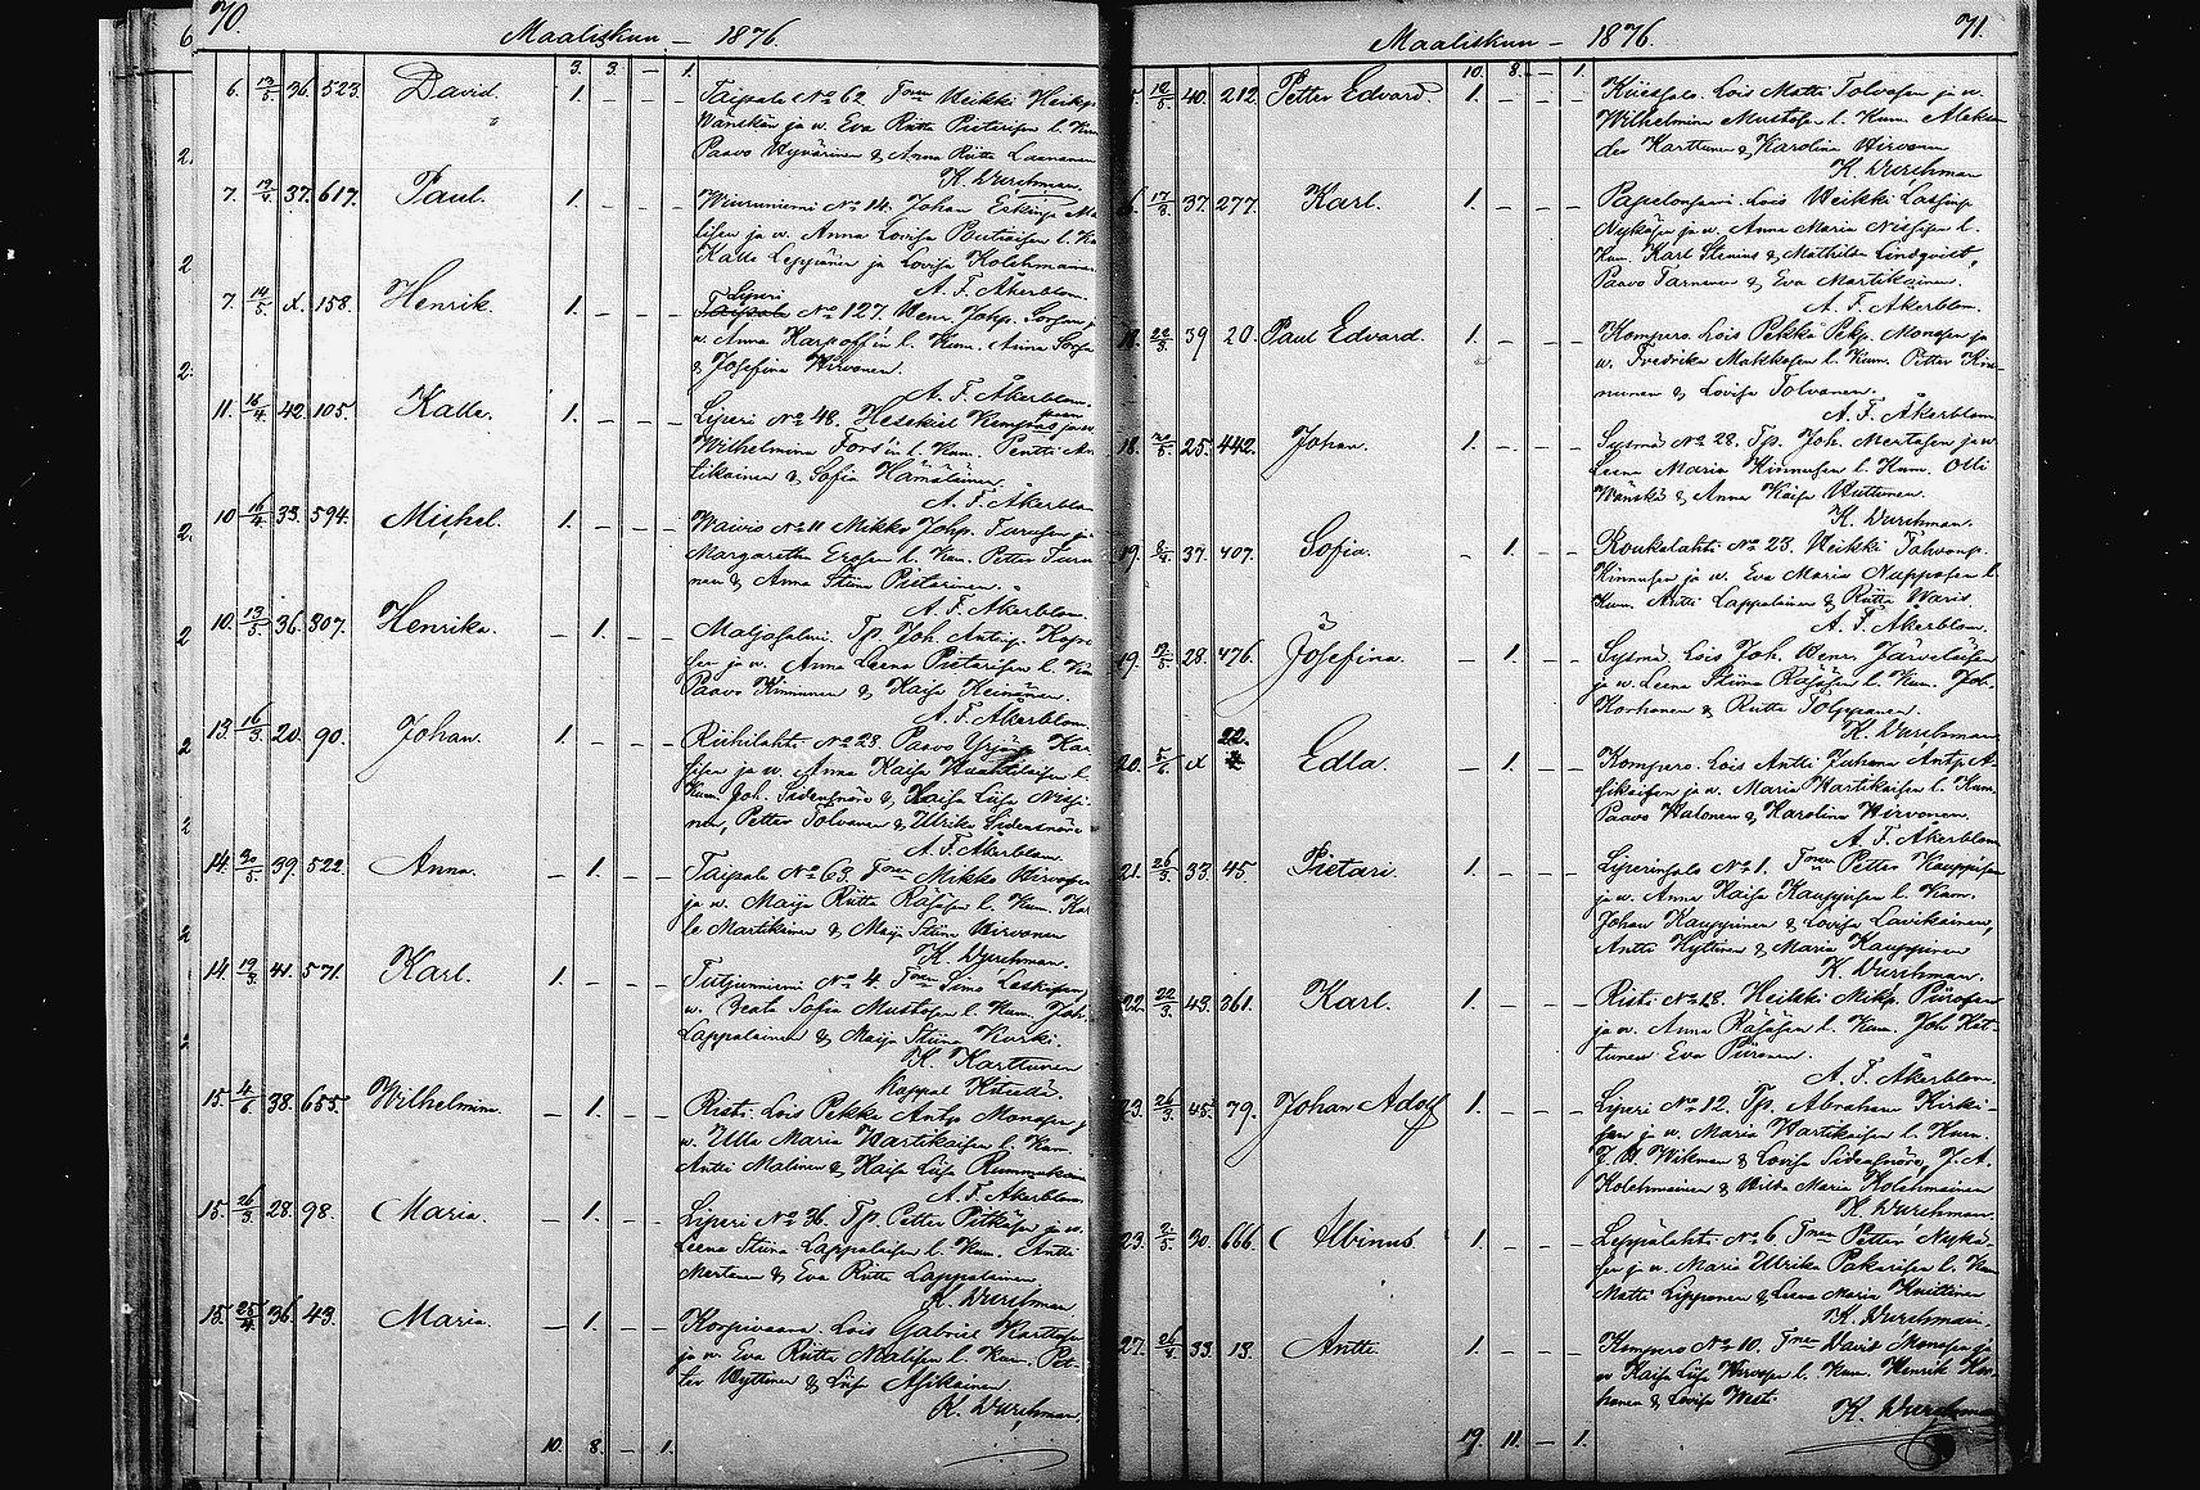 70.
Maaliskun — 1876.
3. 3. — 1.
6. 13/5 36. 523. David. 1. — — — Taipale No 62 Heikki
Wänskän ja v. Eva Riitta Pietarisen l. Kum
Paavo Hyvärinen & Anna Riitta Laananen
K. Durchman.
7. 37. 617. Paul. 1. — — — Wiuruniemi No 14. Johan
ja v. Anna Lovisa l.
Kalle Leppänen ja Lovisa Kolehmainen
A. F. Åkerblom.
Liperi
7. 14/5 x. 158. Henrik. 1. — — — Taipale No 127. Henr. Johp.
v. Anna l. Kum.
& Josefina Hirvonen.
A. F. Åkerblom.
11. 16/4 42. 105. Kalle. 1. — — — Liperi No 48. ja v.
Wilhelmina Fors'in l. Kum. Pentti
& Sofia Hämäläinen.
A. F. Åkerblom
10 16/4 33. 594. Michel. 1. — — — Waivio No 11 Mikko Johp. Turusen ja
Margaretha l. Kum. Petter Turu
nen & Anna Stiina Pietarinen.
A. F. Åkerblom.
10. 13/5 36. 307. Henrika. — 1. — — Maljasalmi. Tp. Joh. Anttip.
sen ja v. Anna Leena Pietarisen l. Kum
Paavo Kinnunen & Kaisa Keinänen.
A. F. Åkerblom.
13. 16/3 20. 90. Johan. 1. — — — Riihilahti No 28. Paavo Yrjönp.
ja v. Anna Kaisa l.
Kum. Joh. Sidensnöre & Kaisa Liisa Nissi-
nen, Petter Tolvanen & Ulrika Sidensnöre
A. F. Åkerblom.
14. 30/5 39. 522. Anna. — 1. — — Taipale No 63. Mikko Hirvosen
ja v. Maija Riitta Räsäsen l. Kum. Kal
le Martikainen & Maija Stiina Hirvonen
K. Durchman.
14. 19/3 41. 571. Karl. 1. — — — No 4. Simo
v. Beata Sofia Mustosen l. Kum. Joh.
Lappalainen & Maija Stiina Kurki.
K. Karttunen
Kappal. Kiteeltä.
15. 4/6 38. 655. Wilhelmina. — 1. — — Risti. Lois Pekka Antp. Monosen j
v. Ulla Maria Hartikaisen l. Kum.
Antti Malinen & Kaisa Liisa
A. F. Åkerblom
15. 26/3 28. 98. Maria. — 1. — — Liperi No 36. Tp. Petter Pitkäsen ja v.
Leena Stiina Lappalaisen l. Kum. Antti
Mertanen & Eva Riitta Lappalainen.
K. Durchman
15. 25/4 36. 43. Maria. — 1. — — Korpivaara. Lois Gabriel
ja v. Eva Riitta Malisen l. Kum. Pet-
ter Hyttinen & Liisa Asikainen.
K. Durchman.
10. 8. — 1.
Maaliskun — 1876. 71.
10. 8. — 1.
40. 212. Petter Edvard. 1. — — — Lois Matti Tolvasen ja v.
Wilhelmina Mustosen l. Kum. Aleksan
der Karttunen & Karolina Hirvonen
K. Durchman
37. 277. Karl. 1. — — — Papelonsaari. Lois Heikki
Nykäsen ja v. Anna Maria Nissisen l.
Kum. Karl Stenius & Mathilda Lindqvist,
Paavo Tarnanen & Eva Martikainen.
A. F. Åkerblom.
18. 39 20. Paul Edvard. 1. — — — Kompero. Lois Pekka Pekp. Monosen ja
v. Fredrika Makkosen l. Kum. Petter Kin-
nunen & Lovisa Tolvanen.
A. F. Åkerblom.
18. 25. 442. Johan. 1. — — — Sysmä No 28. Tp. Joh. Mertasen ja v
Leena Maria Kinnusen l. Kum. Olli
Wänskä & Anna Kaisa Huttunen.
K. Durchman.
19. 37. 407. Sofia. — 1. — — Roukalahti No 23. Heikki Tahvonp.
Kinnusen ja v. Eva Maria Nupposen l
Kum. Antti Lappalainen & Riitta Waris.
A. F. Åkerblom.
19. 28. 476. Josefina. — 1. — — Sysmä. Lois Joh. Henr. Järveläisen
ja v. Leena Stiina Räsäsen l. Kum. Joh.
Korhonen & Riitta Tolppanen.
K. Durchman
22.
20. 5/6 x Edla. — 1. — — Kompero. Lois Antti Juhana Antp. A-
sikaisen ja v. Maria Hartikaisen l. Kum.
Paavo Halonen & Karolina Hirvonen.
A. F. Åkerblom
21. 26/3 33. 45. Pietari. 1. — — — Liperinsalo No 1. Petter Kauppisen
ja v. Anna Kaisa Kauppisen l. Kum.
Johan Kauppinen & Lovisa Lavikainen,
Antti Hyttinen & Maria Kauppinen
K. Durchman.
22. 22/3 43. 361. Karl. 1. — — — Risti No 18. Heikki Mikp. Piirosen
ja v. Anna Räsäsen l. Kum. Joh Kot-
tunen Eva Piironen.
A. F. Åkerblom.
23. 26/3 45. 79. Johan Adolf 1. — — — Liperi No 12. Tp. Abraham Kirki-
sen ja v. Maria Hartikaisen l. Kum.
J. H. Wikman & Lovisa Sidensnöre, J. A.
Kolehmainen & Hilda Maria Kolehmainen
K. Durchman.
23. 2/5 30. 666. Albinus. 1. — — — Leppälahti No 6 Petter Nykä-
sen ja v. Maria Ulrika Pakarisen l. Kum
Matti Lipponen & Leena Maria Knuttinen
K. Durchman.
27. 33. 13. Antti 1. — — — Kompero No 10. David Monosen ja
v Kaisa Liisa Hirvosen l. Kum. Henrik Kor-
honen & Lovisa
K. Durchman
19. 11. — 1.